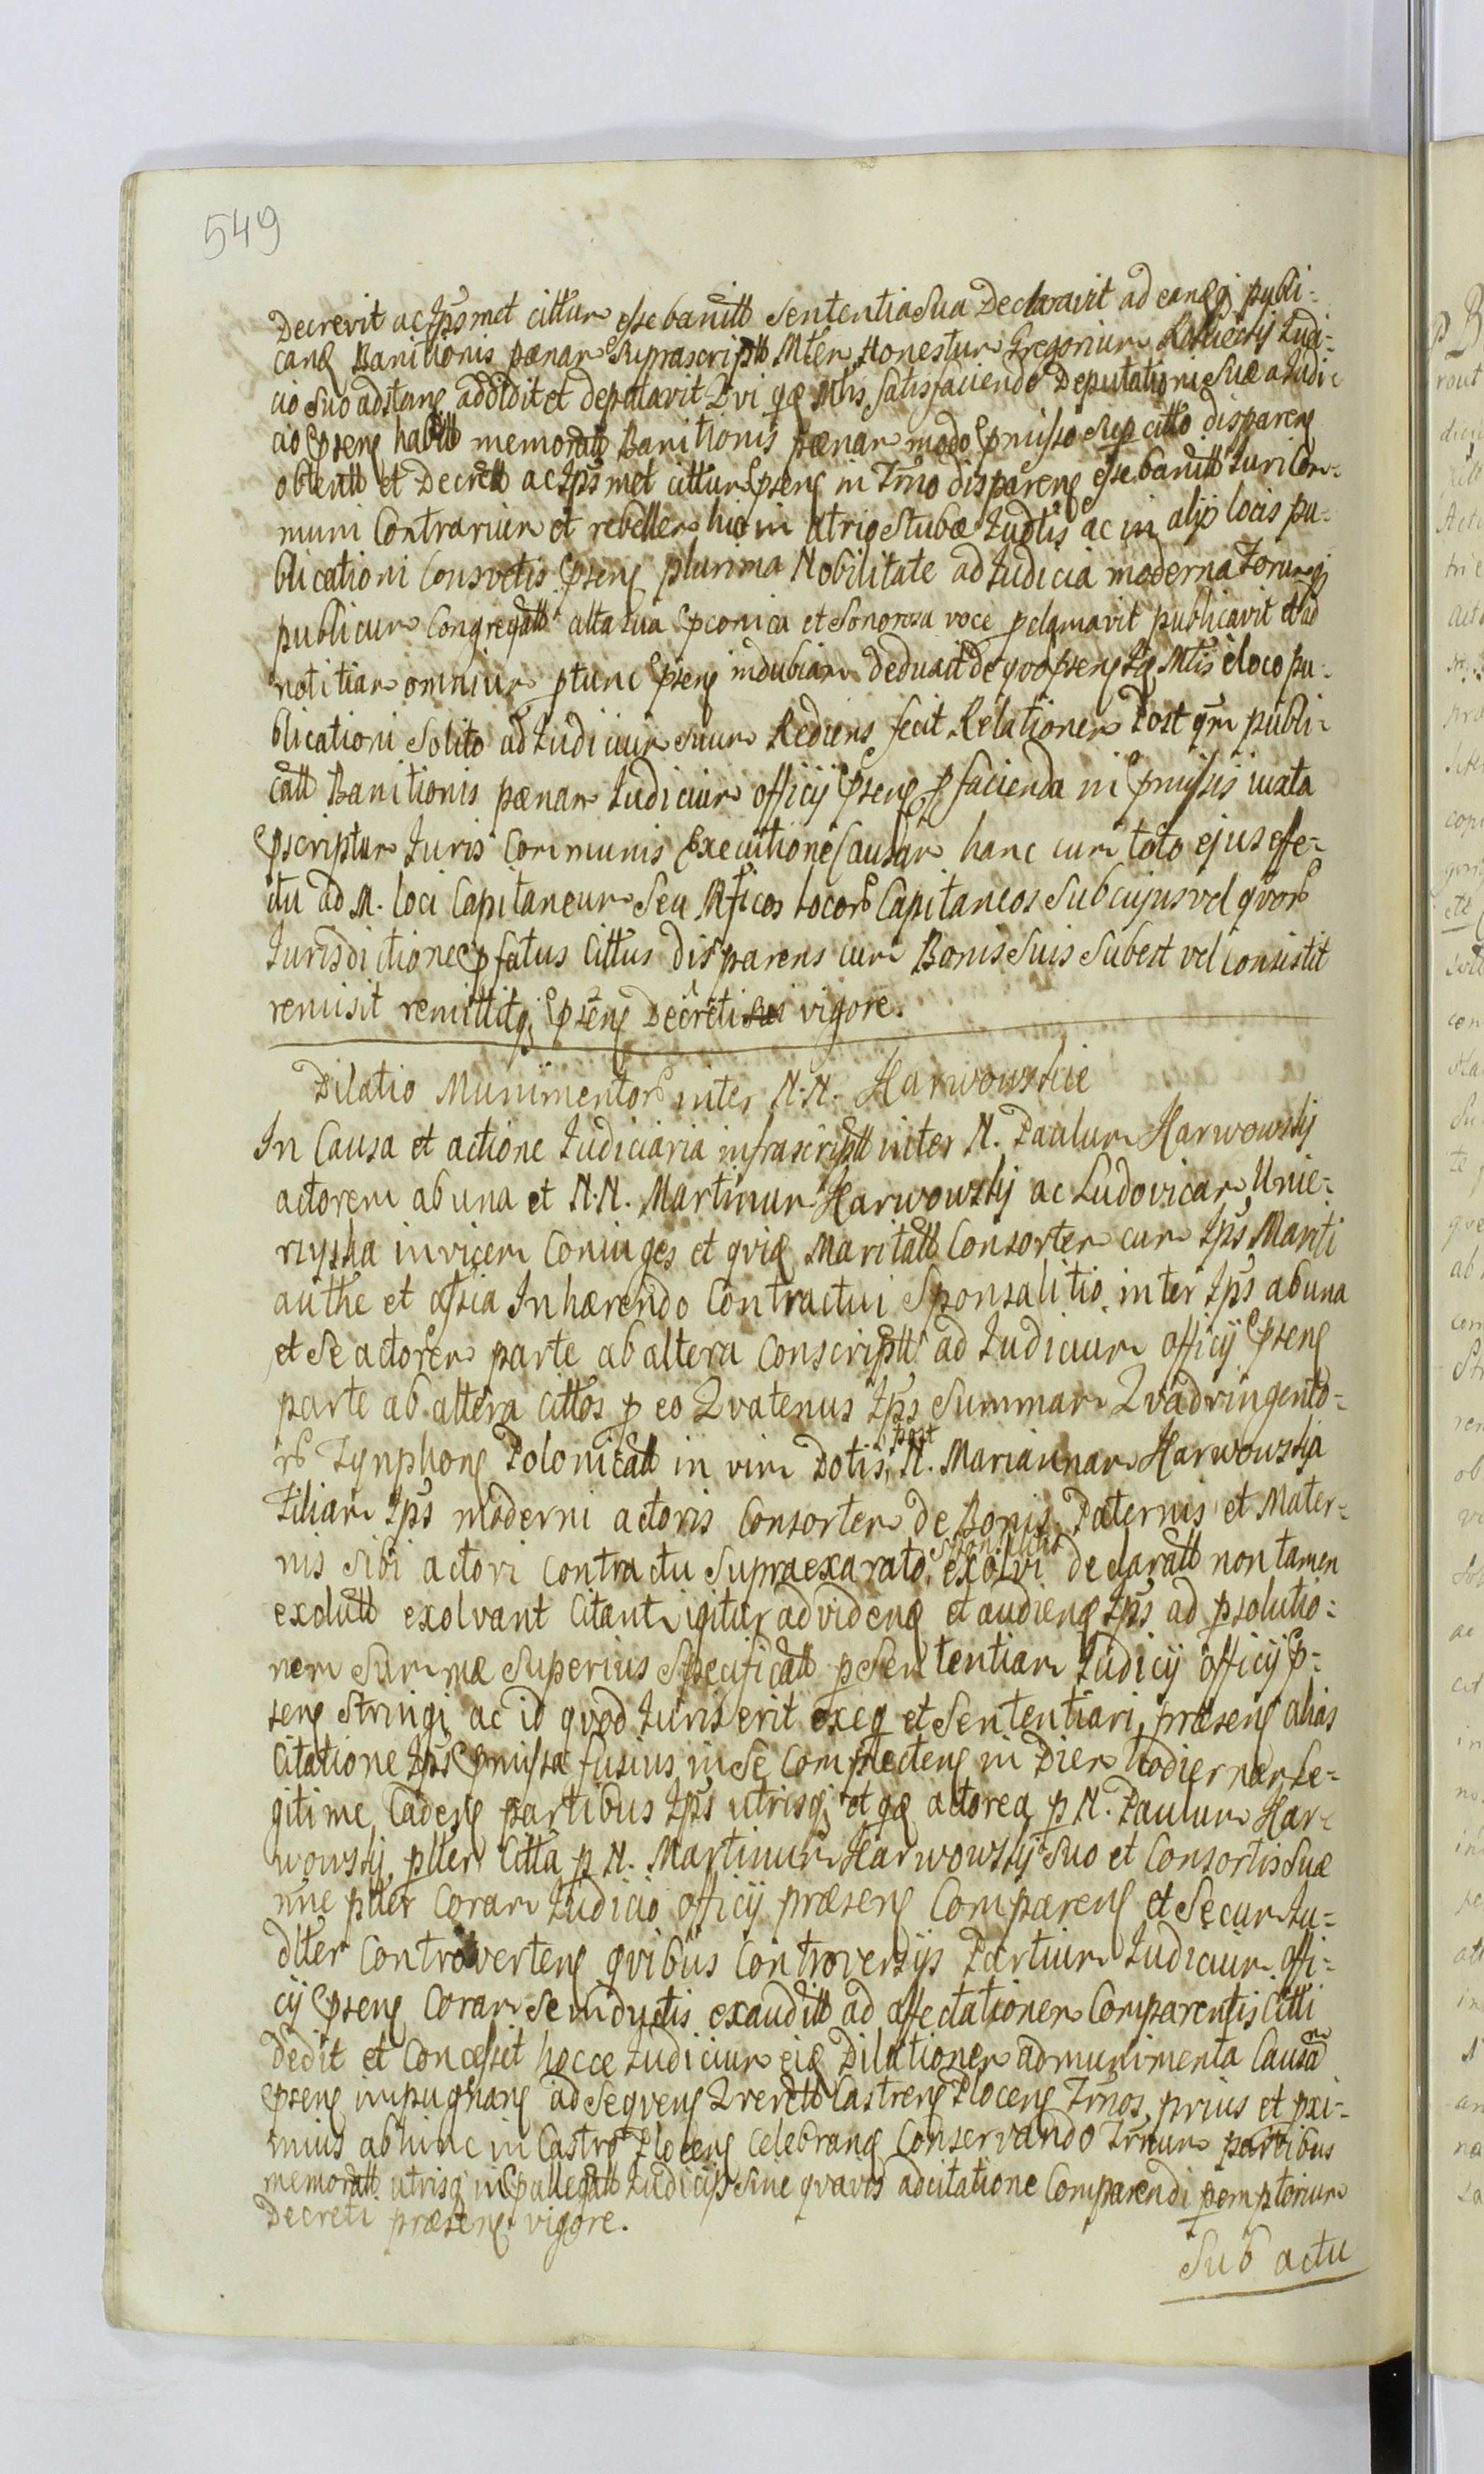 549
Decrevit ac Ipsmet cittum esse banitt Sententia Sua Declaravit ad eanqȝ publi=
canq Banitionis pænam Suprascriptt Mtem Honestum Gregorium Judi=
cio Suo adstang addidit et deputavit Qui qæ Mtis Satisfaciendo Deputationi Suæ a Judi=
cio pseng habitt memoratt Banitionis pænam modo pmisso Sup citto dispareng
obtentt et Decrett ac Ipsmet cittum pseng in Trno dispareng esse banitt Juri Com=
muni Contrarium et rebellem hic in atrio Stubæ Judlis ac in alijs locis pu=
blicationi Consvetis pseng plurima Nobilitate ad Judicia moderna Forumqȝ
publicum Congregatt alta sua pconica et Sonorosa voce pclamavit publicavit et ad
notitiam omnium ptunc pseng indubiam deduxit de quo pseng Is. Mtis e loco pu=
blicationi Solito ad Judicium Suum Rediens fecit Relationem Post qm publi=
catt Banitionis pænam Judicium officij pseng p facienda in pmissis iuxta
pscriptum Juris Communis Executione Causam hanc cum toto ejus effe=
ctu ad M. loci Capitaneum Seu Mficos locor Capitaneos Sub cujus vel quor
Jurisdictione pfatus Cittus disparens cum Bonis Suis Subest vel consistit
remisit remittitqȝ pseng Decreti sui vigore.
Dilatio Munimentor inter N.N. Harwowskie
In Causa et actione Judiciaria infrascriptt inter N. Paulum Harwowskij
actorem ab una et N.N. Martinum Harwowskij ac Ludovicam Unie=
rzyska invicem Coniuges et qvid Maritatt Consortem cum Ips Mariti
authe et assia Inhærendo Contractui Sponsalitio inter Ips ab una
et Se actorem parte ab altera Conscriptt ad Judicium officij pseng
parte ab altera cittos p eo Quatenus Ips Summam Quadringento=
r Tynphong Polonicatt in vim Dotis post N. Mariannam Harwowska
Filiam Ips moderni actoris Consortem de Bonis Paternis et Mater=
nis Sibi actori Contractu Supra exarato Sponsalitio exolvi declaratt non tamen
exolutt exolvant Citant igitur ad videnq et audienq Ips ad psolutio=
nem Summæ Superius Specificatt p Sententiam Judicij officij p=
seng Stringi ac id quod Juris erit exeq et Sententiari, præseng alias
Citatione Ips pmissa fusius in Se Complecteng in Diem hodiernam Le=
gitime Cadeng partibus Ips utrisqȝ et qæ actorea p N. Paulum Har=
wowskij pller Citta p N. Martinum Harwowskij Suo et Consortis Suæ
nne pller Coram Judicio officij præseng Compareng et Secum Ju=
dlter Controverteng quibus Controversijs Partium Judicium offi=
cij pseng Coram Se inductis exauditt ad affectationem Comparentis Citti
dedit et Concessit hocce Judicium eid Dilationem ad munimenta Causam
pseng impugnang ad Seqveng Qverett Castreng Ploceng Trnos prius et pxi=
mius abhinc in Castro Ploceng Celebrang Conservando Trnum partibus
memoratt utrisqȝ in pallegatt Judicijs Sine quavis adcitatione Comparendi pemptorium
Decreti præseng vigore.
Sub actu